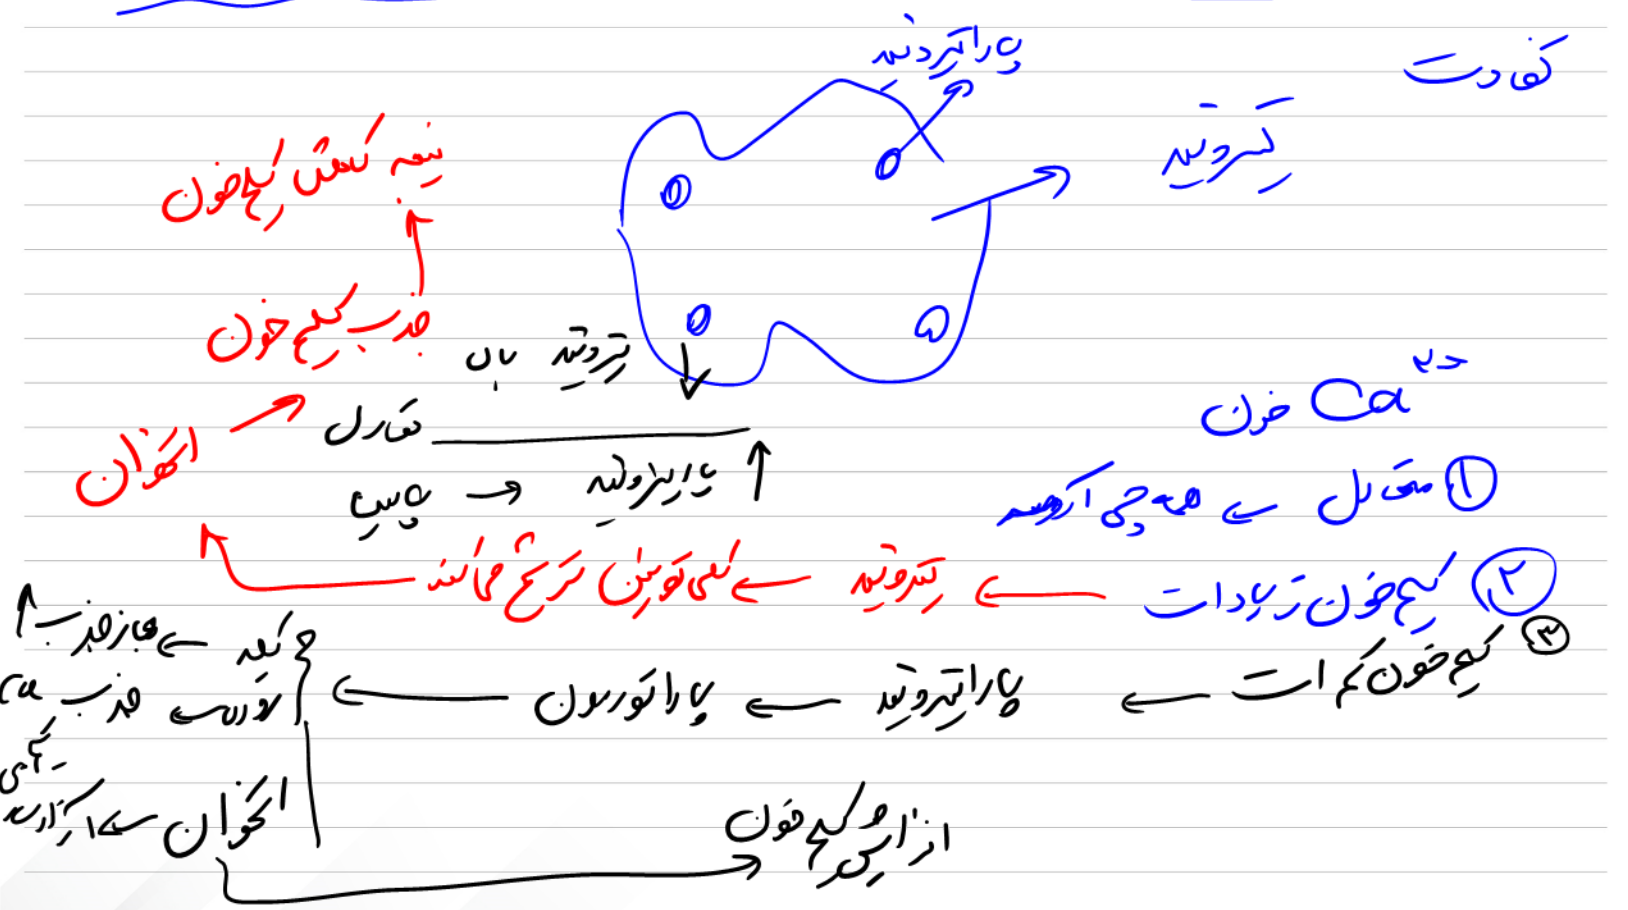 تفاوت
پاراتیروئید
تیروئید
نتیجه کاهش کلسیم خون
جذب کلسیم خون
استخوان
تیروئید بالا
تعادل
پاراتیروئید → پایین
Ca²⁺ خون
① متعادل ← همه چی اکوعه
② کلسیم خون زیاد است ← تیروئید ← کلسی تونین ترشح می کند
③ کلسیم خون کم است ← پاراتیروئید ← پاراتورمون
کلیه ← باز جذب ↑
روده ← جذب Ca
استخوان ← آزاد
افزایش کلسیم خون